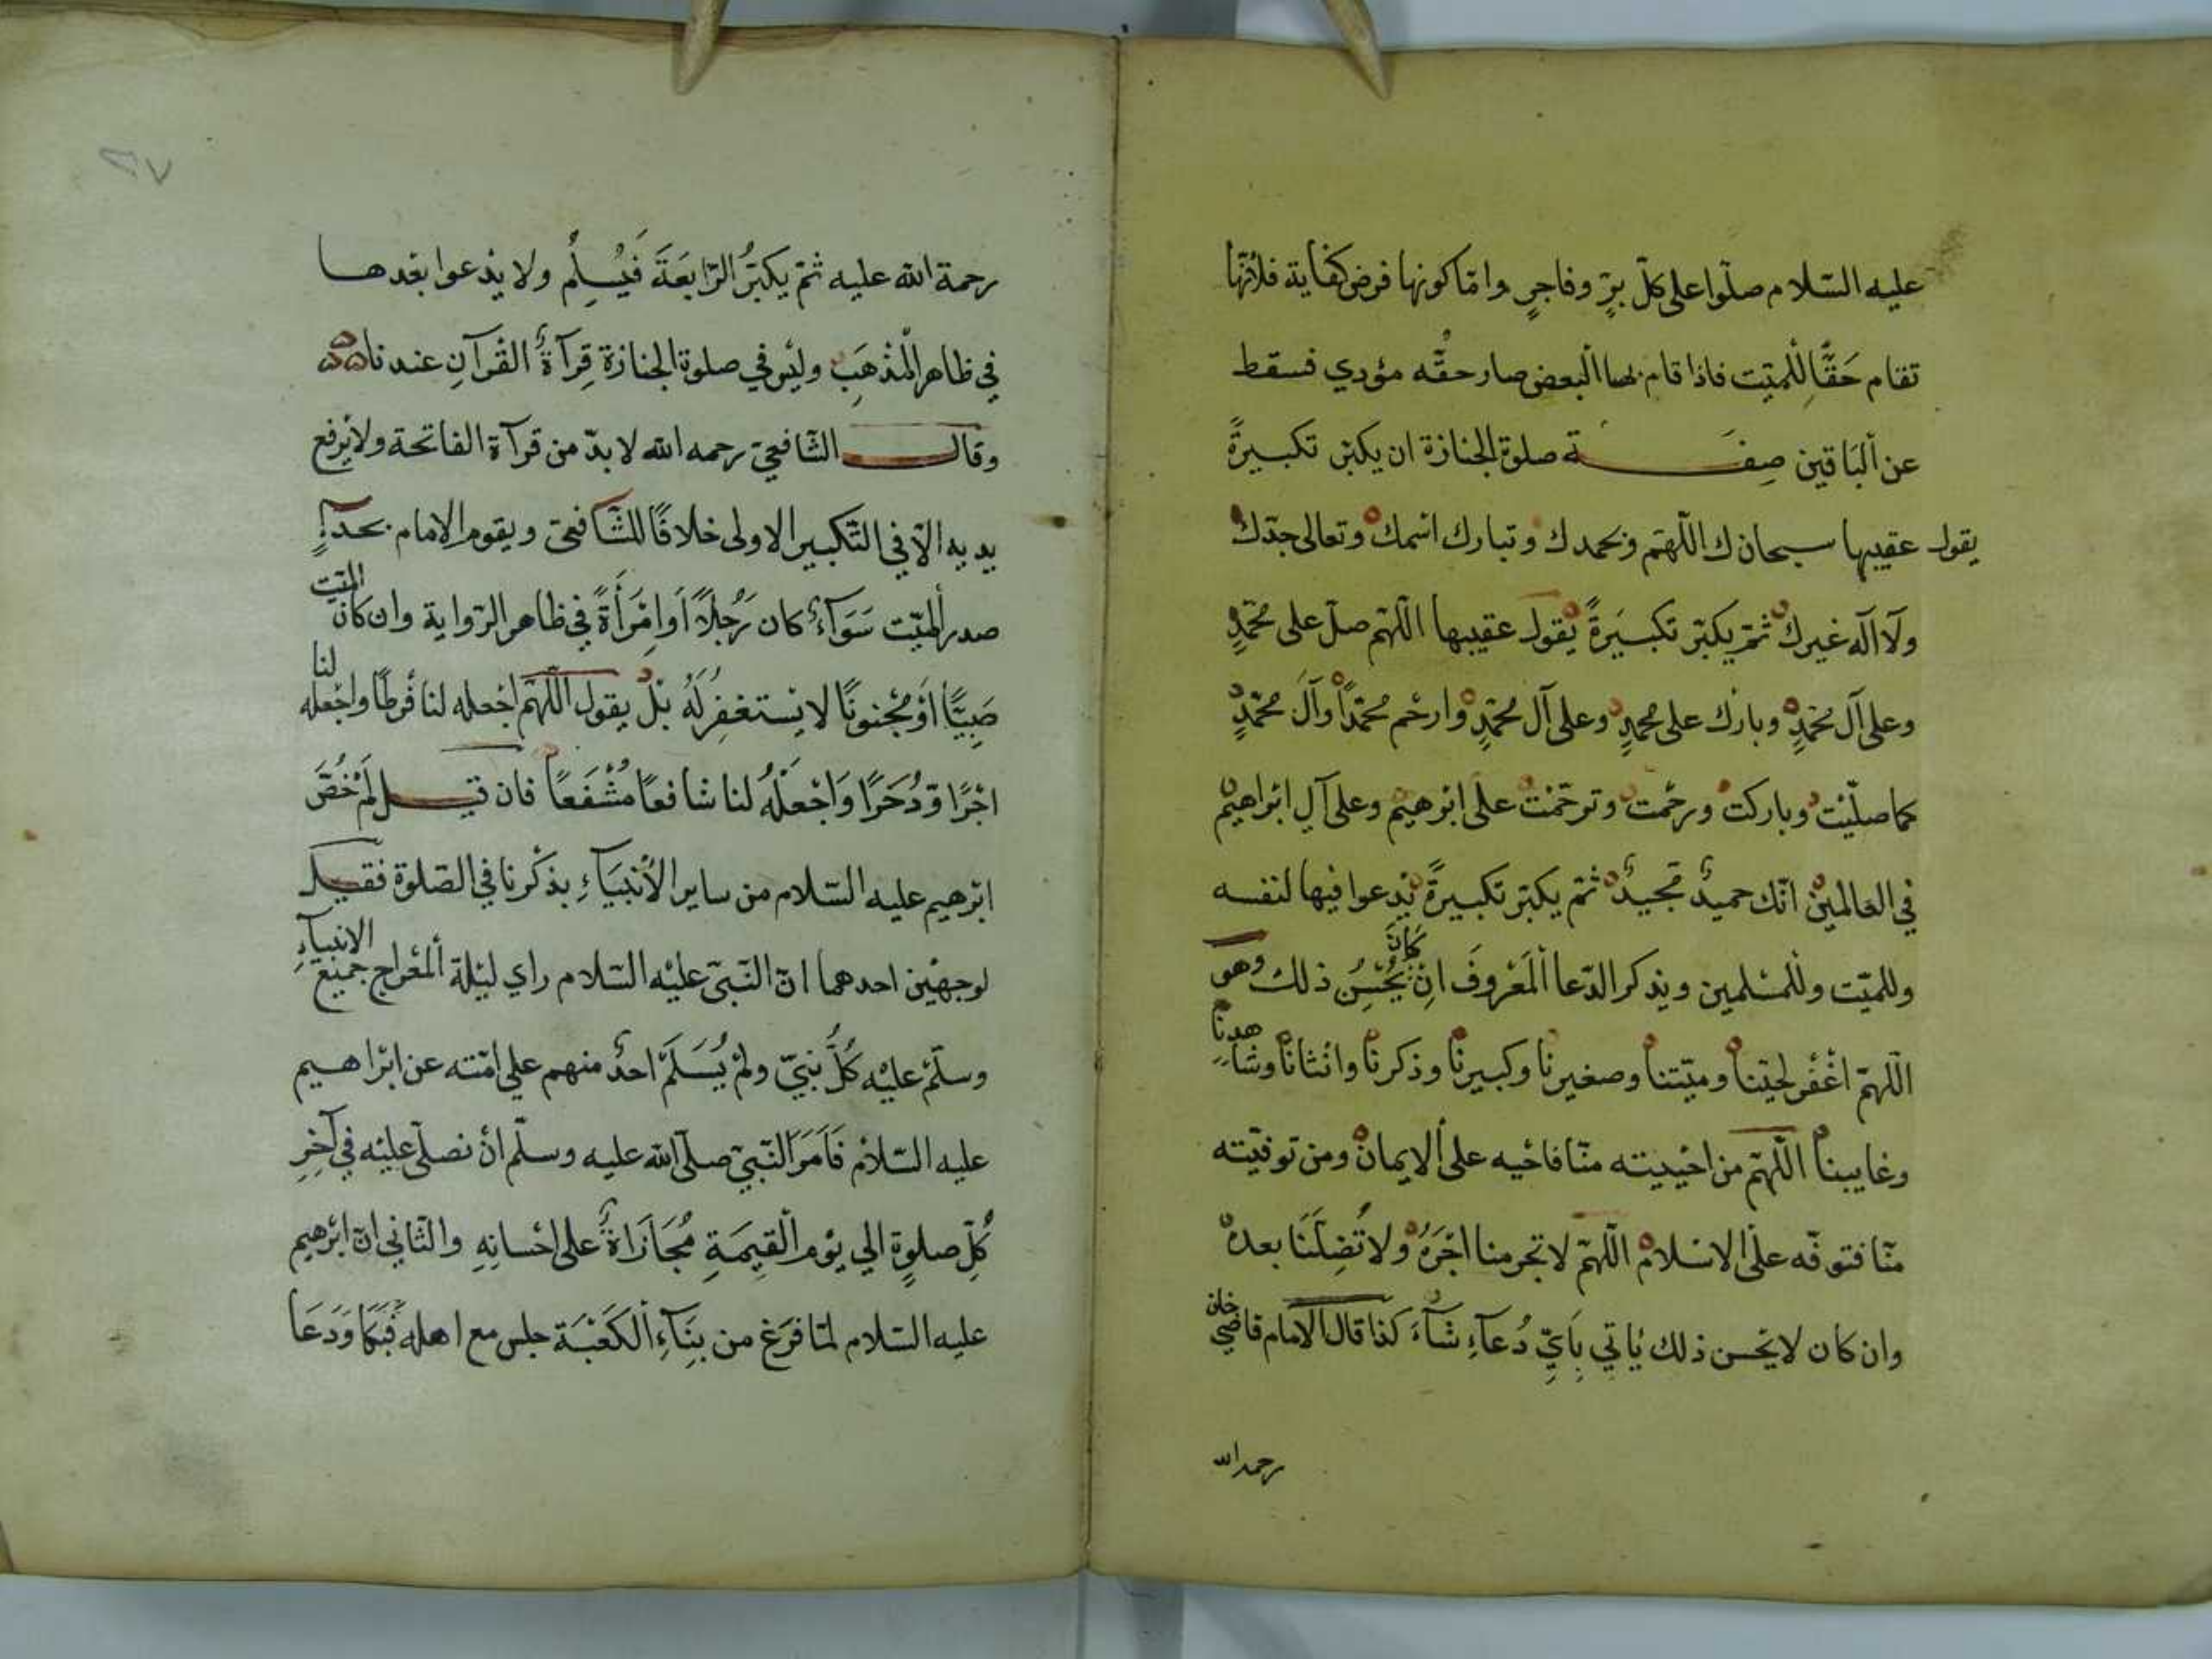 عليه السّلام صلّوا على كلّ برٍّ وفاجرٍ وامّا كونها فرض كفاية فلأنّها
تقام حَقًّا لِلْميّت فاذا قام بها البعض صار حقُّه مؤدي فسقط
عن ألبَاقين صِفَة صلوة الجنازة ان يكبّر تكبيرةً
يقول عقيبها سبحانك اللّهمّ وبحمدك وتبارك اسْمك وتعالى جدّك
ولآ اله غيرك ثمّ يكبّر تكبيَرةً يقول عقيبها اللّهمّ صلّ على محمّدٍ
وعلى آل محمّدٍ وبارك على محمدٍ وعلى آل محمّدٍ وارحْم محمّداً وآلَ محمّدٍ
كما صلّيْت وباركت ورحْمت وترحّمْت على ابْرهيم وعلى آل ابْراهيم
في العالمين انّك حميدٌ مجيدٌ ثمّ يكبّر تكبيرةً يدعوا فيها لنفسه
وللميّت وللْمسْلمين ويذكر الدّعا ألمَعْروفَ انِ كَانَ يُحْسِنُ ذلك وهو
اللّهمّ اغْفْر لحيّنا وميّتنا وصغيرنا وكبيرنا وذكرنا وانْثانا وشاهدنا
وغايبنا اللّهمّ من احْييته منّا فاحْيه على ألايمان ومن توفّيته
منّا فتوفّه على الاسْلام اللّهمّ لا تحرمنا اجْرَهُ ولا تُضِلّنَا بعده
وان كان لا يحسن ذلك يأتي بِأَيِّ دُعآءٍ شآءَ كذا قال الامام قاضي خان
رحمه الله
٣٧
رحمة الله عليه ثمّ يكبّرُ الرّابعَةَ فَيُسلِّمُ ولا يدْعوا بعْدها
في ظاهر الْمذْهَبِ وليْس في صلوة الجنازة قِرآءةُ القْرآنِ عندنا
وقال الشّافعيّ رحمه الله لا بدّ من قرآءة الفاتحة ولا يرفع
يديه الّا في التّكبير الاولى خلافًا للشّافعيّ ويقوم الامام بحذآءِ
صدر ألميّت سَوَآءٌ كان رَجُلاً أَوِ امْرَأَةً في ظاهر الرّواية وان كان الميّت
صَبِيًّا أوْ مجْنونًا لا يسْتغفِرُ لَهُ بلْ يقول اللّهمّ اجْعله لنا فرطًا واجْعله لنا
اجْرًا وّذُخرًا وَاجْعَلْهُ لنا شافعًا مُشَفَّعًا فان قيل لمَ خُصَّ
ابْرهيم عليه السّلام من ساير الأنْبيَآءِ بذكْرنا في الصّلوة فقيل
لوجهْين احدهما انّ النّبيّ عليْه السّلام راي ليْلة ألمعْراج جميْع الانبيآءِ
وسلّم عليْه كُلُّ نبيّ ولمْ يُسَلّمْ احدٌ منهم على امّته عن ابْراهيم
عليه السّلام فَأَمَرَ النّبيّ صلّى الله عليه وسلّم أنْ نصلّى عليْه في آخِرِ
كُلِّ صلوةٍ الي يوْم ألقِيمَةِ مُجَازَاةً على احْسانِهِ والثّاني انّ ابْرهيم
عليه السّلام لمّا فرَغ من بِنَآءِ ألكَعْبَة جلس مع اهله فَبَكَا وَدَعَا